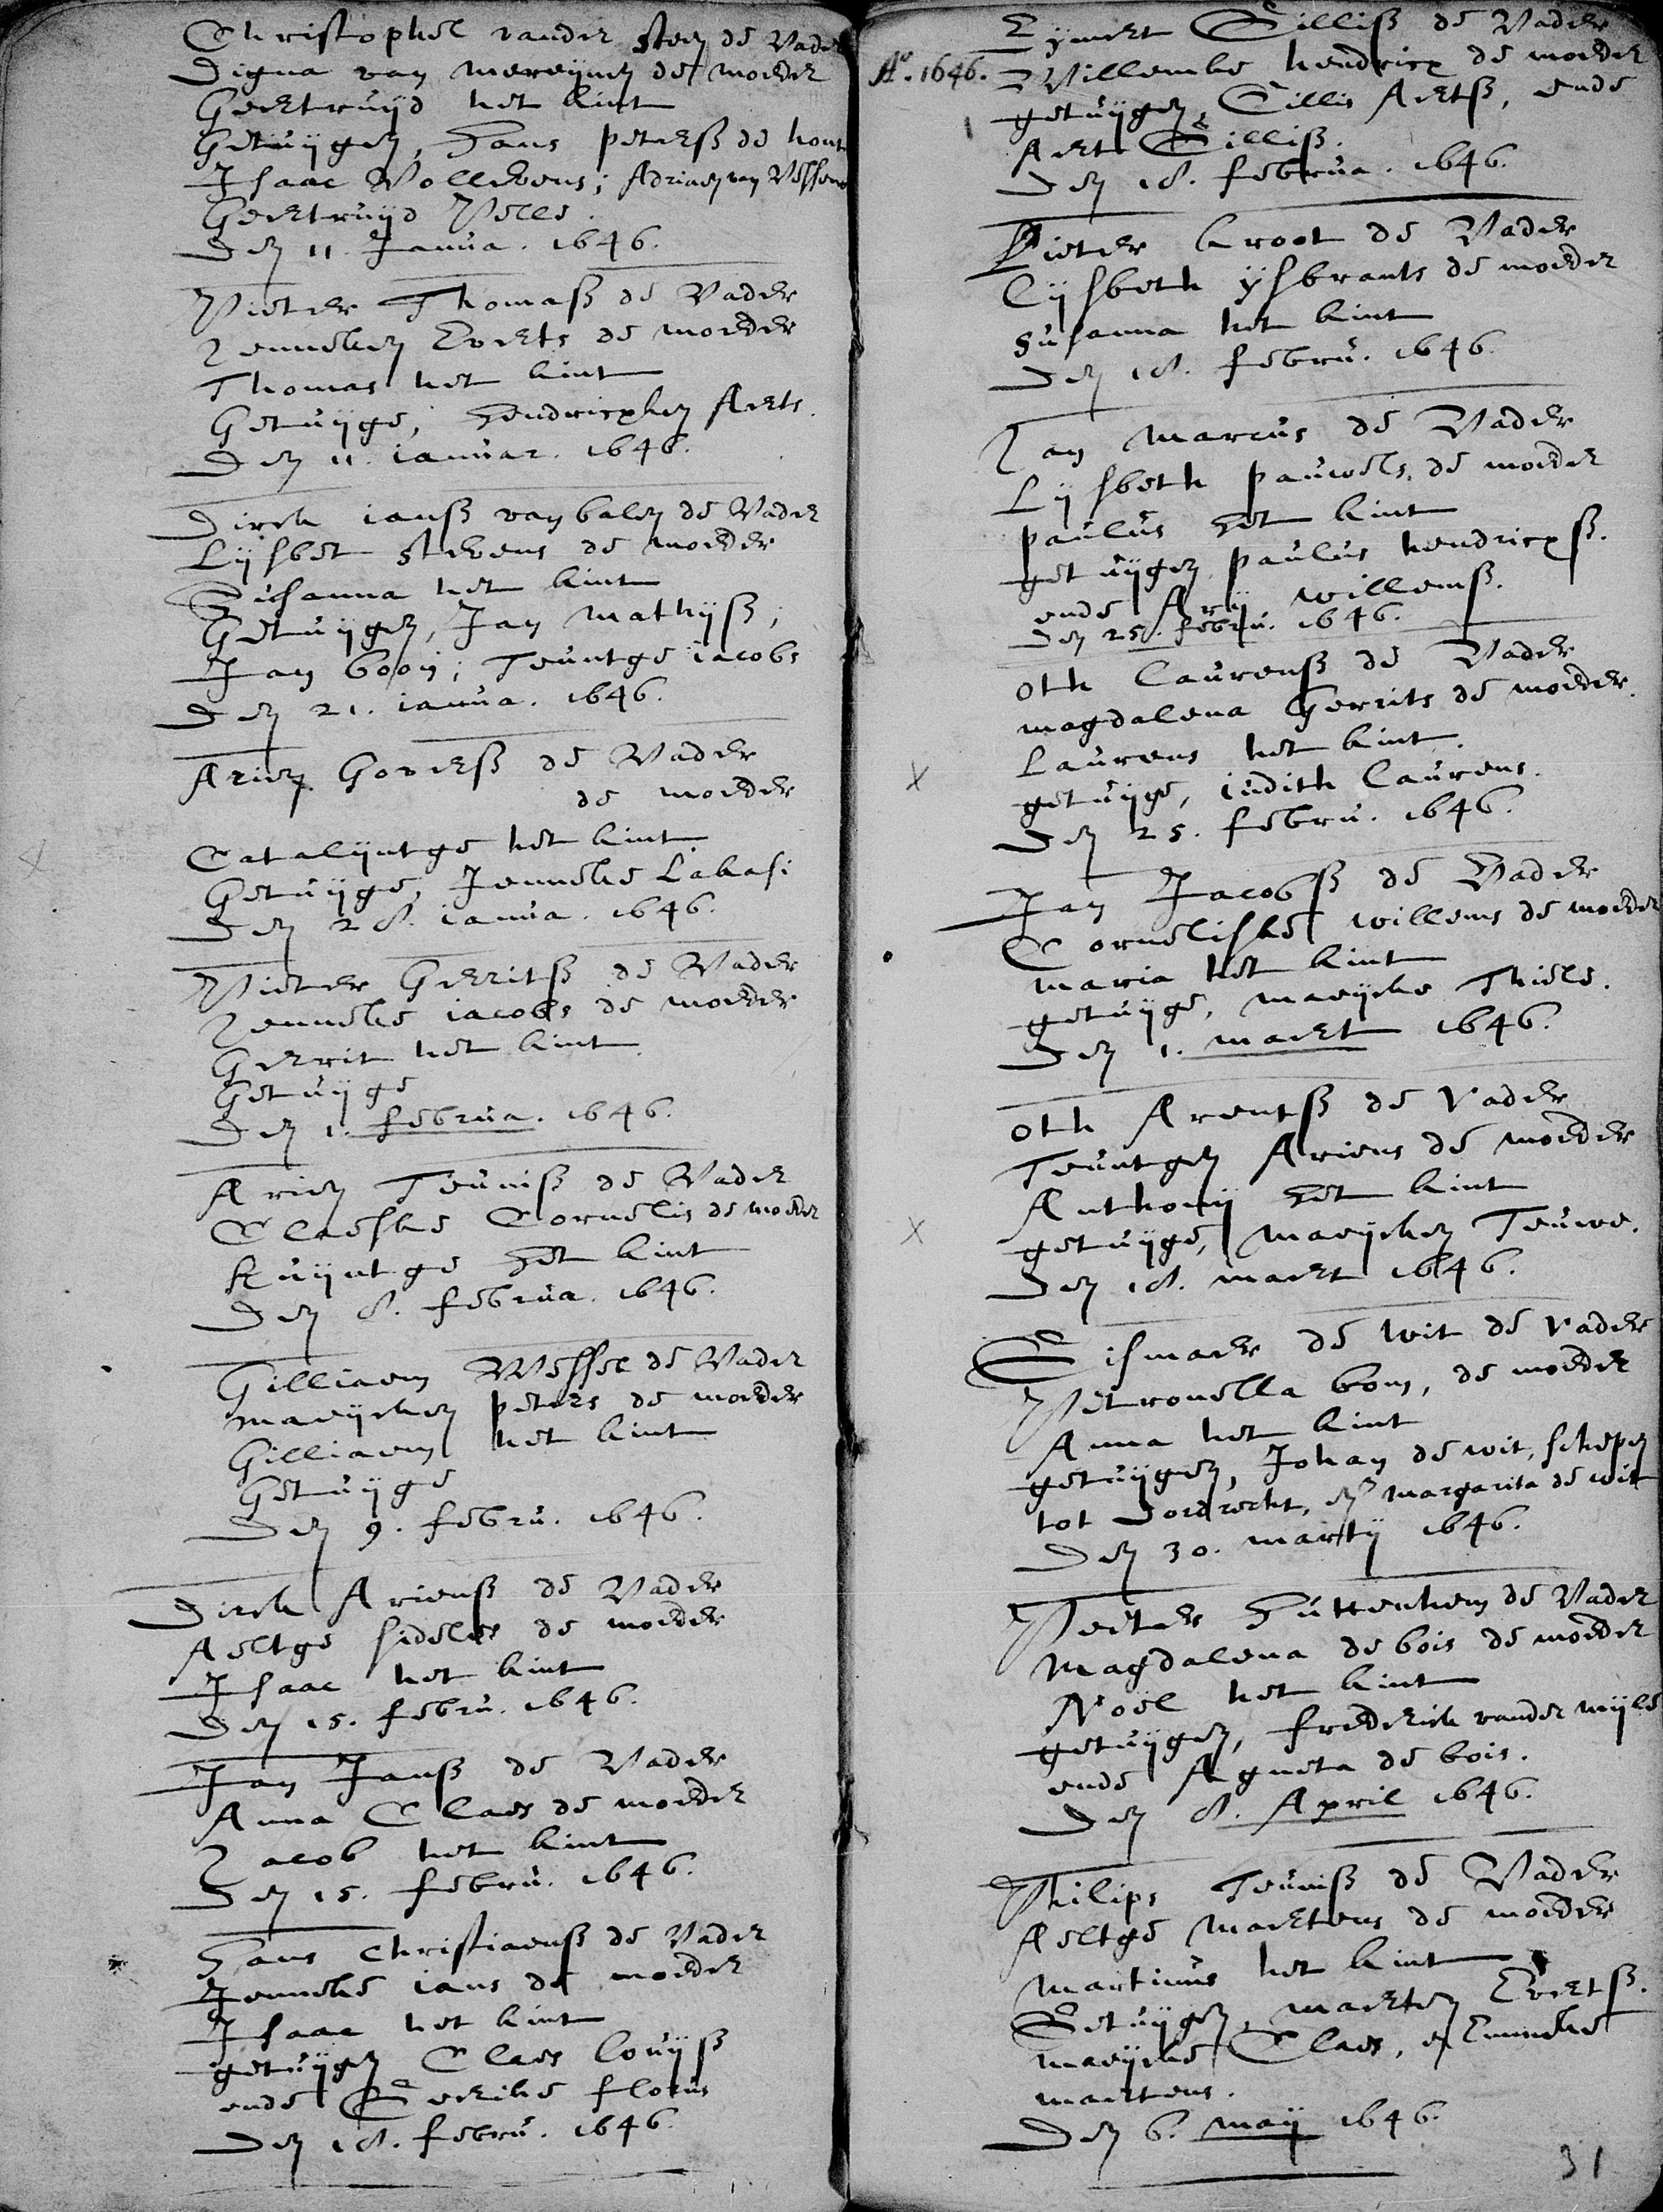 Christophel vander Steen de Vader
Digna van Mereijnen de moeder
Geertruijd het kint
Getuijgen, Hans peterß de hont
Isaac Vollevens; Adriaen van Vessem
Geertruijd Pelle.
Den 11. Janua. 1646.
Pieter Thomaß de Vader
Jenneken Everts de moeder
Thomas het kint
Getuijge, Hendricxken Aerts.
Den 11. ianuar. 1646.
Dirck ianß van balen de Vader
Lijsbet stevens de moeder
Susanna het kint
Getuijgen, Jan Mathijß;
Jan booij; Teuntge iacobs
Den 21. ianua. 1646.
Arien Goverß de Vader
de moeder
Catalijntge het kint.
Getuijge, Jenneke Lakasi
Den 28. ianua. 1646.
Pieter Gerritß de Vader
Jenneke iacobs de moeder
Gerrit het kint.
Getuijge
Den 1. februa. 1646.
Arien Teuniß de Vader
Claeske Cornelis de moeder
Kuijntge Het kint
Den 8. februa. 1646.
Gilliaem Wessel de Vader
Maeijcken peters de moeder
Gilliaem het kint
Getuijge
Den 9. febru. 1646.
Dirck Arienß de Vader
Aeltge de moeder
Isaac het kint
Den 15. febru. 1646.
Jan Janß de Vader
Anna Claes de moeder
Jacob het kint
Den 15. febru. 1646.
Hans Christiaenß de Vader
Jenneke ians de moeder
Isaac het kint
getuijgen Claes Louijß
ende Geerike floris
Den 18. febru. 1646.
Eijmert Gilliß de Vader
Ao. 1646.
Willemke hendricx de moeder
getuijgen, Gillis Aertß, ende
Aert Gilliß.
Den 18. februa. 1646.
Pieter kroot de Vader
Lijsbeth ijsbrants de moeder
Susanna het kint
Den 18. febru. 1646.
Jan Marcus de Vader
Lijsbeth pauwels, de moeder
paulus Het kint
getuijgen paulus hendricxß.
ende Arij willemß.
Den 25. febru. 1646.
Oth Laurenß de Vader
magdalena Gerrits de moeder.
Laurens het kint.
getuijge, iudith Laurens.
Den 25. febru. 1646.
Jan Jacobß de Vader
Corneliske willems de moeder
maria het kint
getuijge, maeijcke Thiele.
Den 1. maert 1646.
Oth Arentß de Vader
Teuntgen Ariens de moeder
Anthonij Het kint
getuijge, maeijcken Teuwe.
Den 18. maert 1646.
Gismaer de wit de vader
Petronella bom, de moeder
Anna het kint
getuijgen, Johan de wit, schepen
tot Dordrecht, en margarita de wit
Den 30. martij 1646.
Peeter Huttenhem de Vader
Magdalena de bois de moeder
Noël het kint
getuijgen, frederick vander Mijle
ende Agneta de bois.
Den 8. April 1646.
Philips Teuniß de Vader
Aeltge Maertens de moeder
martinus het kint
Getuijgen, maerten Evertß.
maeijcke Claes, en Emmeke
maertens.
Den 6. maij 1646.
31